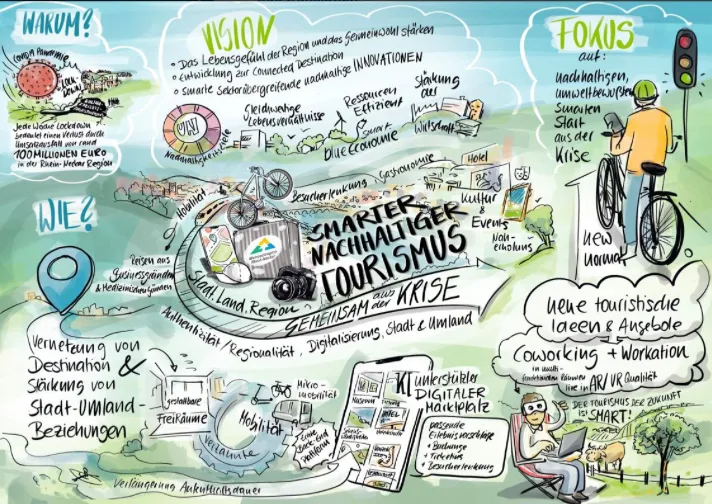 WARUM?
COVID PANDEMIE
LOCK-
DOWN
Jede Woche Lockdown
bedeutet einen Verlust durch
Umsatzausfall von rund
100 MILLIONEN EURO
in der Rhein-Neckar Region
VISION
• Das Lebensgefühl der Region und das Gemeinwohl stärken
• Entwicklung zur Connected Destination
• smarte Sektorübergreifende nachhaltige INNOVATIONEN
Nachhaltigkeitsziele
Gleichwertige
Lebensverhältnisse
Ressourcen
Effizient
smart
blue Economie
Stärkung
der
Wirtschaft
FOKUS
auf:
nachhaltigen,
umweltbewußten
Smarten
Start
aus der
Krise
new
normal
Mobilität
Besucherlenkung
Gastronomie
Hotel
Kultur
&
Events
Nah-
erholung
SMARTER
NACHHALTIGER
TOURISMUS
Stadt, Land, Region
GEMEINSAM aus der KRISE
Authentizität/Regionalität, Digitalisierung, Stadt & Umland
WIE?
Reisen aus
Businessgründen
& Medizinischen Gründen
Vernetzung von
Destination &
Stärkung von
Stadt-Umland-
Beziehungen
gestaltbare
Freiräume
Mobilität
Mikro-
mobilität
Verlängerung Aufenthaltsdauer
Museum
HOTEL
KI unterstützter
DIGITALER
Marktplatz
passende
Erlebnisvorschläge
+ Buchung
+ Ticketing
+ Besucherlenkung
neue touristische
Ideen & Angebote
Coworking + Workation
in multi-
funktionalen Räumen
live in AR/VR Qualität
DER TOURISMUS DER ZUKUNFT
IST SMART!